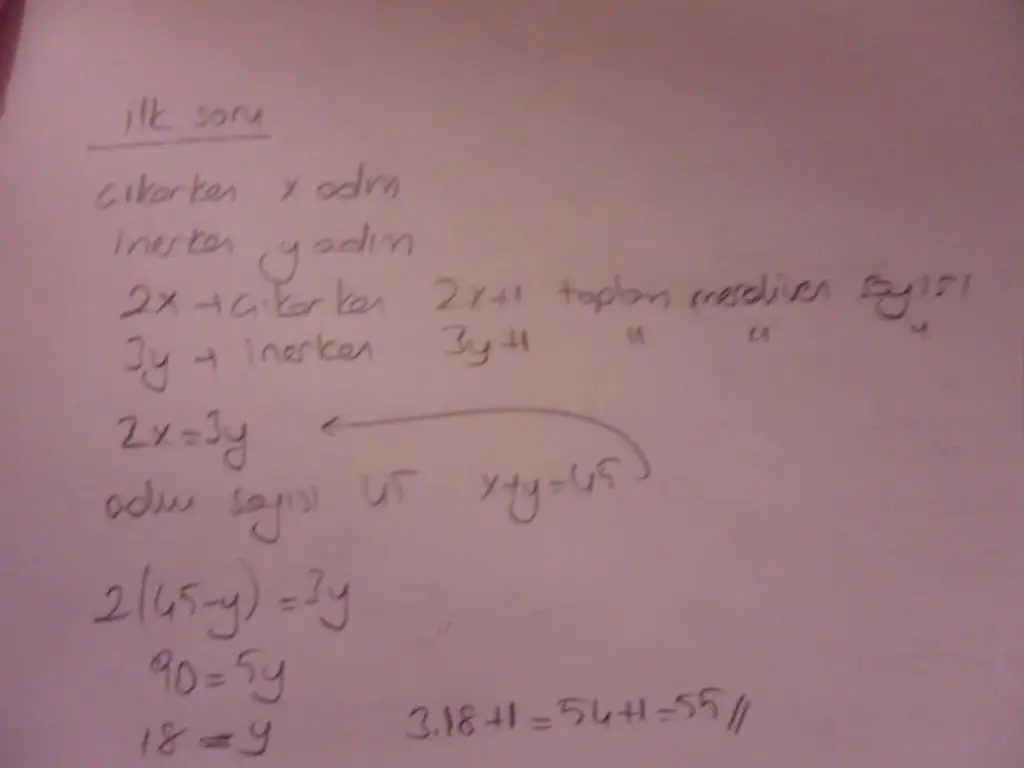 ilk soru
çıkarken x adım
inerken y adım
2x → çıkarken 2x+1 toplam merdiven sayısı
3y → inerken 3y+1 " " "
2x=3y
adım sayısı 45 x+y=45
2(45-y)=3y
90=5y
18=y 3.18+1=54+1=55//